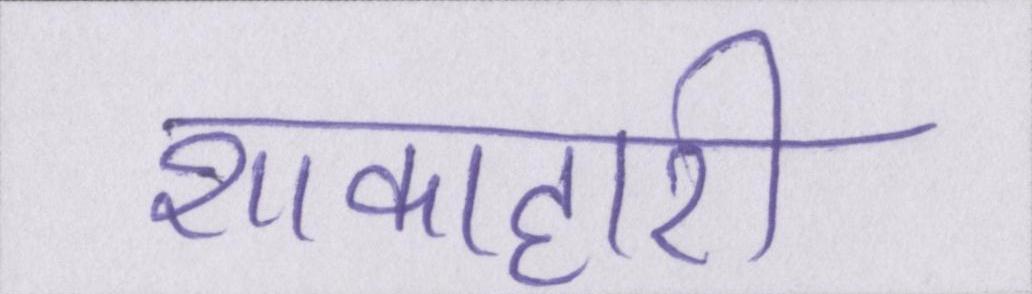 शाकाहारी